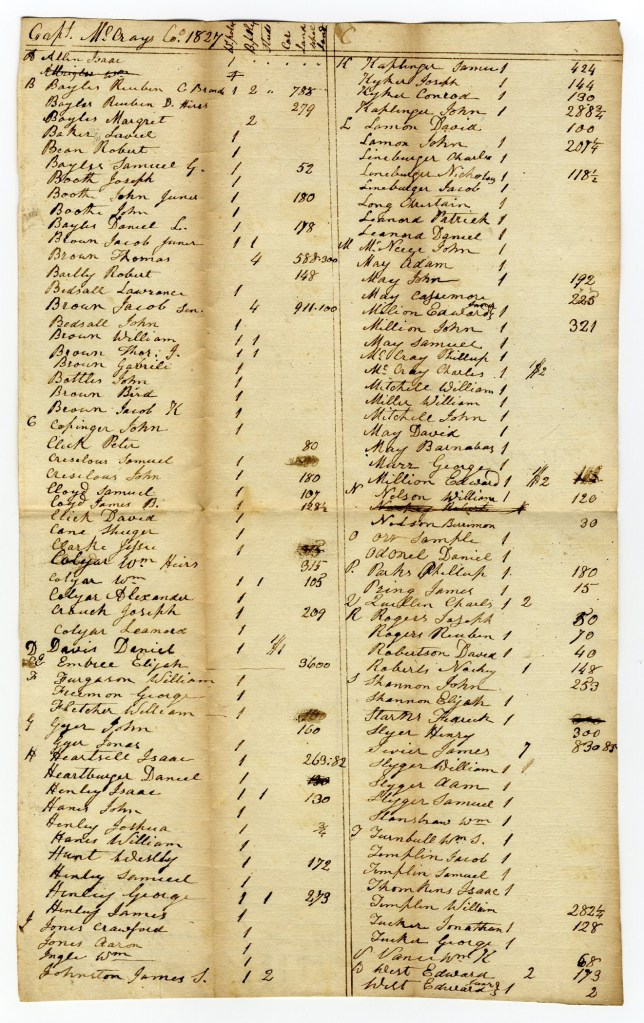 Capt. McCrays Co. 1827
A Allin Isaac 1
B Bayles Reuben C Brands 1 2 " 788
Bayles Reuben D. Hires 279
Bayles Margret 2
Baker David 1
Bean Robert 1
Bayles Samuel G. 1 52
Booth Joseph 1
Booth John Juner 1 180
Booth John 1
Bayles Daniel L. 1 178
Brown Jacob Juner 1 1
Brown Thomas 4 588-300
Bailly Robert 148
Bedsall Lawrance 1
Brown Jacob Sen. 4 911-100
Bedsall John 1
Brown William 1 1
Brown Thos. J. 1 1
Brown Gabriel 1
Bottles John 1
Brown Bird 1
Brown Jacob K 1
C Copinger John 1
Click Peter 80
Creselous Samuel 1
Creselous John 1 180
Cloyd Samuel 1 107
Cloyd James B. 1 128½
Click David 1
Cane 1
Clarke Jessee 1 315
Colyar Wm Heirs 315
Colyar Wm 1 1 105
Colyar Alexander 1
Crouch Joseph 1 209
Colyar Leanord 1
D Davis Daniel 1
E Embree Elijah 3600
F Furgason William 1
Fiermon George 1
Fletcher William 1
G Gyer John 1 150
Gyer Jonas 1
H Heartsell Isaac 1 263:82
Heartburger Daniel 1 130
Henley Isaac 1 1 130
Hanes John 1
Henley Joshua 1 ¾
Hanes William 1
Hunt Westly 1 172
Henley Samuel 1
Henley George 1 1 273
Henley James 1
J Jones Crawford 1
Jones Aaron 1
Ingle Wm 1
Johnston James S. 1 2
C
K Kaplinger Samuel 1 424
Kyker Joseph 1 144
Kyker Conrad 1 130
Kaplinger John 1 288¾
L Lamon David 100
Lamon John 1 207¼
Lineburger Charles 1
Lineburger Nicholas 1 118½
Lineburger Jacob 1
Long Christain 1
Leanord Patrick 1
Leanard Daniel 1
M McNeese John 1
May Adam 1
May John 1 192
May Cassemore 225
Million Edward Juner 1
Million John 1 321
May Samuel 1
McCray Phillup 1
McCray Charles 1
Mitchell William 1
Miller William 1
Mitchell John 1
May David 1
May Barnabas 1
Murr George 1
Million Edward 1
N Nolson William 1 120
Nolson Berrimon 30
O Orr Sample 1
Odonel Daniel 1
P. Parks Phillup 1 180
Peing James 1 15
Q Quillin Charls 1 2
R Rogers Joseph 1 50
Rogers Reuben 1 70
Robertson David 1 40
Roberts Nacky 1 148
S Shannon John 253
Shannon Elijah 1
Starkes Fredrick 1
Slyer Henry 300
Sevier James 7 830 85
Slyger William 1 1
Slyger Aam 1
Slyger Samuel 1
Stonshaw Wm 1
T Turnbull Wm S. 1
Templin Jacob 1
Templin Samuel 1
Thomkins Isaac 1
Templin William 282½
Tucker Jonathan 1 128
Tucker George 1
V Vance Wm K 68
W West Edward 2 173
West Edward Juner 1 2